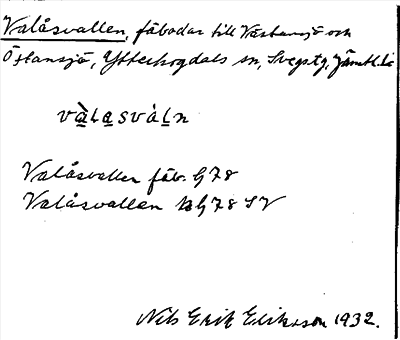 Valåsvallen, fäbodar till Västansjö och
Östansjö, Ytterhogdals sn, Svegs tg, Jämtl. l.
vàlasvàln
Valåsvallen fäb. G 78
Valåsvallen G 78 SV
Nils Erik Eliksson 1932.